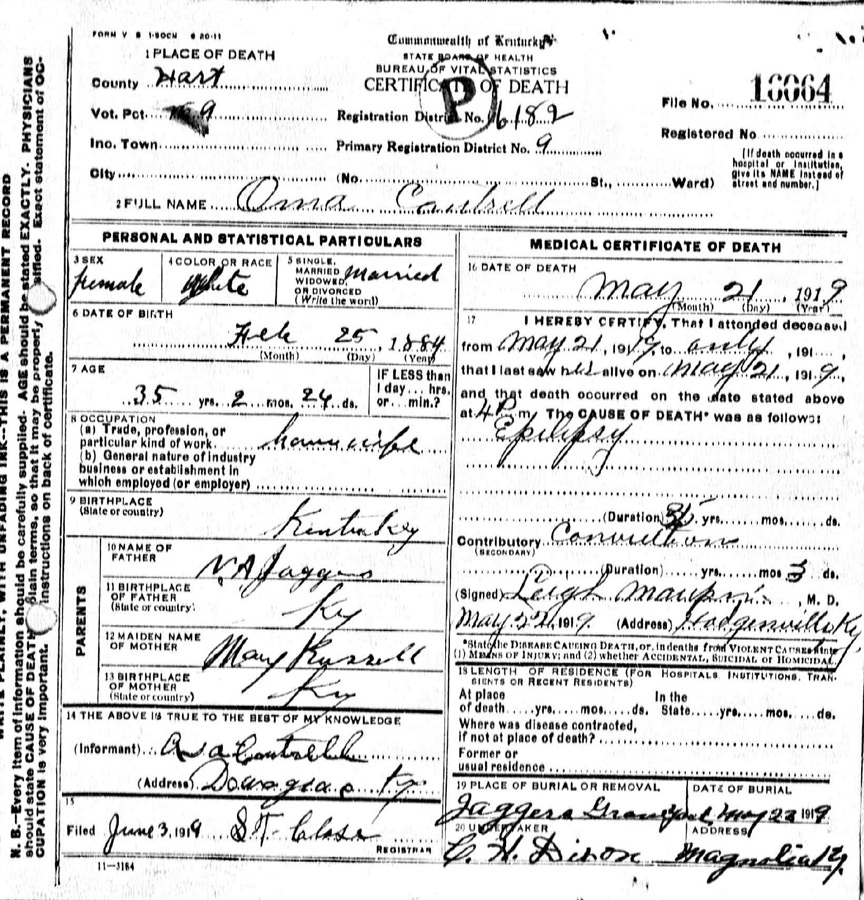 FORM V S 1-50CM 6 20-11
Commonwealth of Kentucky
STATE BOARD OF HEALTH
BUREAU OF VITAL STATISTICS
CERTIFICATE OF DEATH
P
1 PLACE OF DEATH
County Hart
Vot. Pct 9
Inc. Town
City (No. St., Ward)
Registration District No. 6182
Primary Registration District No. 9
File No. 16064
Registered No.
[If death occurred in a
hospital or institution,
give its NAME instead of
street and number.]
2 FULL NAME Oma Cantrell
PERSONAL AND STATISTICAL PARTICULARS
3 SEX
female
4 COLOR OR RACE
White
5 SINGLE,
MARRIED
WIDOWED,
OR DIVORCED
(Write the word)
Married
6 DATE OF BIRTH
Feb 25, 1884
(Month) (Day) (Year)
7 AGE
35 yrs. 2 mos. 24 ds.
IF LESS than
1 day... hrs.
or... min.?
8 OCCUPATION
(a) Trade, profession, or
particular kind of work. housewife
(b) General nature of industry
business or establishment in
which employed (or employer)
9 BIRTHPLACE
(State or country)
Kentucky
PARENTS
10 NAME OF
FATHER
N. A Jaggers
11 BIRTHPLACE
OF FATHER
(State or country)
Ky
12 MAIDEN NAME
OF MOTHER
Mary Russell
13 BIRTHPLACE
OF MOTHER
(State or country)
Ky
14 THE ABOVE IS TRUE TO THE BEST OF MY KNOWLEDGE
(Informant) Cantrell
(Address) Ky
15
Filed June 3, 1919 S T Close
REGISTRAR
11-3184
MEDICAL CERTIFICATE OF DEATH
16 DATE OF DEATH
May 21, 1919
(Month) (Day) (Year)
17 I HEREBY CERTIFY, That I attended deceased
from May 21, 1919, to only, 191
that I last saw her alive on May 21, 1919,
and that death occurred on the date stated above
at 4 P m. The CAUSE OF DEATH* was as follows:
Epilepsy
(Duration) 35 yrs. mos. ds.
Contributory Convulsion
(SECONDARY)
(Duration) yrs. mos 3 ds.
(Signed) Leigh Maupin, M. D.
May 22, 1919. (Address) Hodgenville Ky
*State the DISEASE CAUSING DEATH, or, in deaths from VIOLENT CAUSES state
(1) MEANS OF INJURY; and (2) whether ACCIDENTAL, SUICIDAL or HOMICIDAL.
18 LENGTH OF RESIDENCE (FOR HOSPITALS, INSTITUTIONS, TRAN-
SIENTS OR RECENT RESIDENTS)
At place In the
of death yrs. mos. ds. State yrs. mos. ds.
Where was disease contracted,
if not at place of death?
Former or
usual residence
19 PLACE OF BURIAL OR REMOVAL
Jaggers Graveyard
DATE OF BURIAL
May 23 1919
20 UNDERTAKER
C. H. Dixon
ADDRESS
Magnolia Ky.
WRITE PLAINLY, WITH UNFADING INK--THIS IS A PERMANENT RECORD
N. B.--Every item of information should be carefully supplied. AGE should be stated EXACTLY. PHYSICIANS
should state CAUSE OF DEATH plain terms, so that it may be properly sified. Exact statement of OC-
CUPATION is very important. instructions on back of certificate.